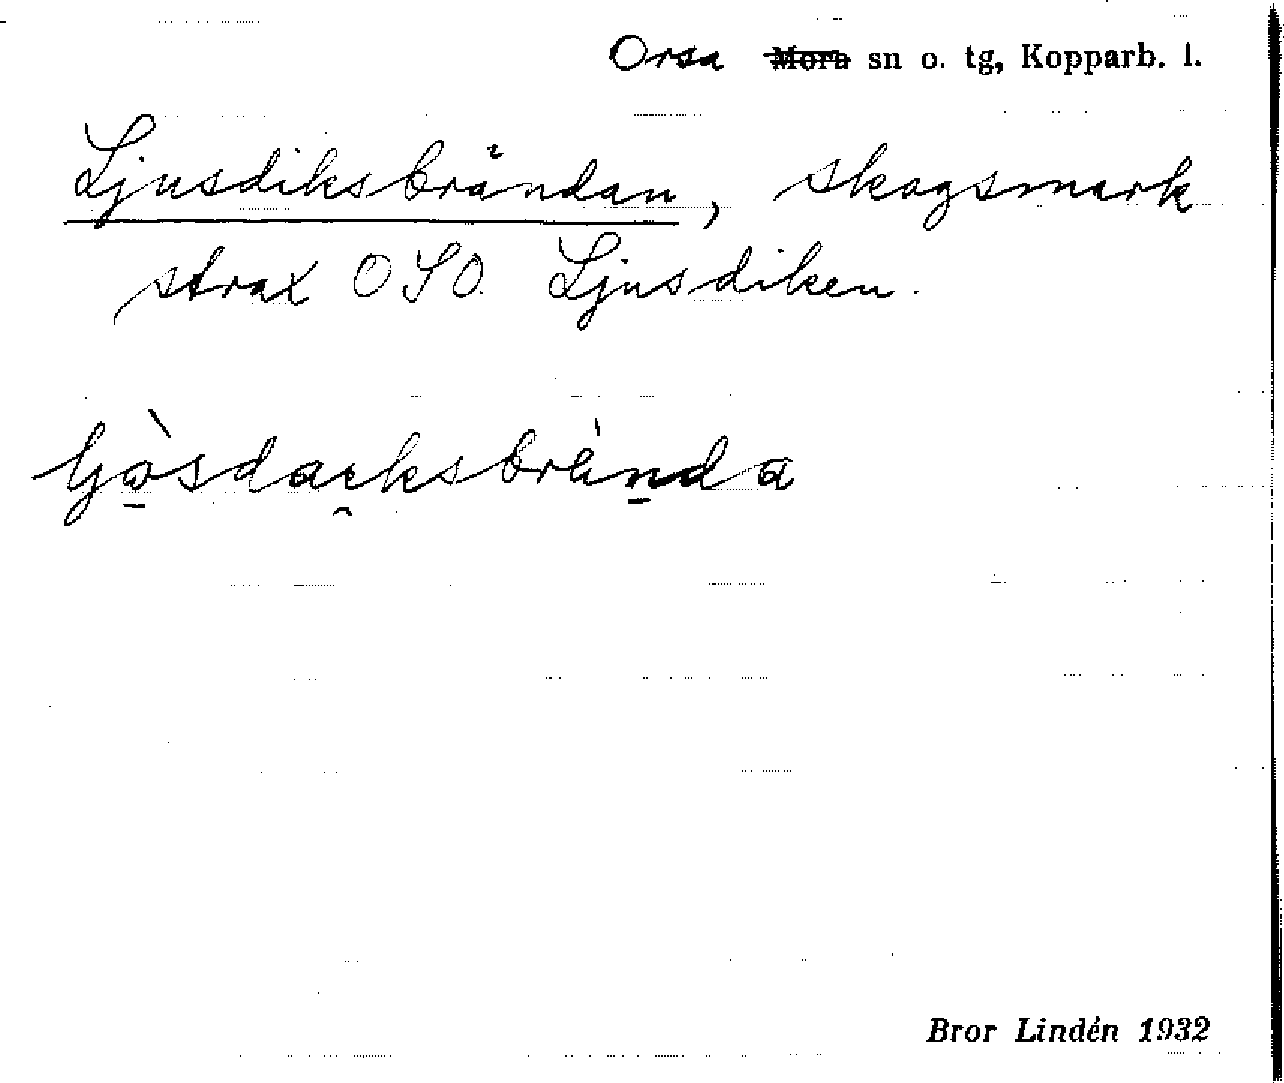 Orsa Mora sn o. tg, Kopparb. l.
Ljusdiksbrändan, skogsmark
strax OSO Ljusdiken.
Bror Lindén 1932